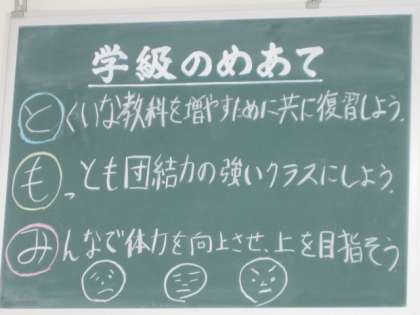 学級のめあて
とくいな教科を増やすために共に復習しよう.
もっとも団結力の強いクラスにしよう.
みんなで体力を向上させ、上を目指そう